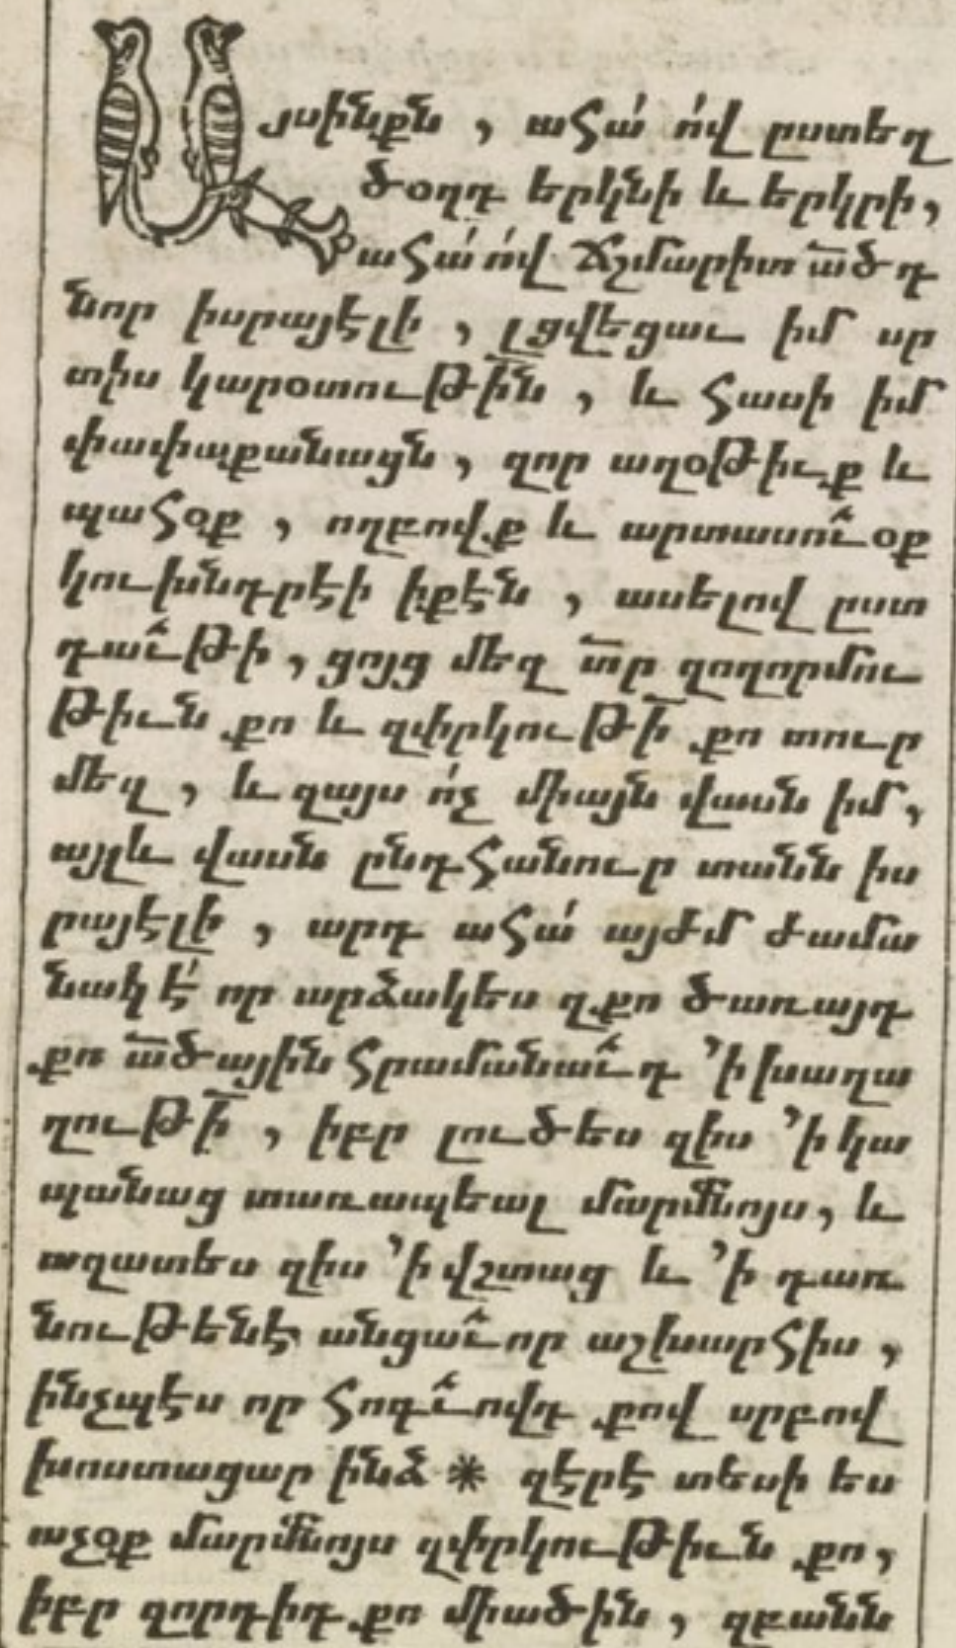 Այսինքն, ահա՛ ո՛վ ըստեղ
ծօղդ երկնի և երկրի,
ահա՛ ո՛վ ճշմարիտ ած դ
նոր իսրայէլի, լցվեցաւ իմ սր
տիս կարօտութիւն, և հասի իմ
փափաքանացն, զոր աղօթիւք և
պահօք, ողբովք և արտասուօք
կու խնդրէի իքէն, ասելով ըստ
դաւթի, ցոյց մեզ տր զողորմու
թիւն քո և զփրկութի քո տուր
մեզ, և զայս ո՛չ միայն վասն իմ,
այլև վասն ընդհանուր տանն իս
րայէլի, արդ ահա՛ այժմ ժամա
նակ է՛ որ արձակես զքո ծառայդ
քո ածային հրամանաւդ ՚ի խաղա
ղութի, իբր լուծես զիս ՚ի կա
պանաց տառապեալ մարմնոյս, և
ազատես զիս ՚ի վշտաց և ՚ի դառ
նութենէ անցաւոր աշխարհիս,
ինչպէս որ հոգւովդ քով սրբով
խոստացար ինձ * զէրէ տեսի ես
աչօք մարմնոյս զփրկութիւն քո,
իբր զորդիդ քո միածին, զբանն